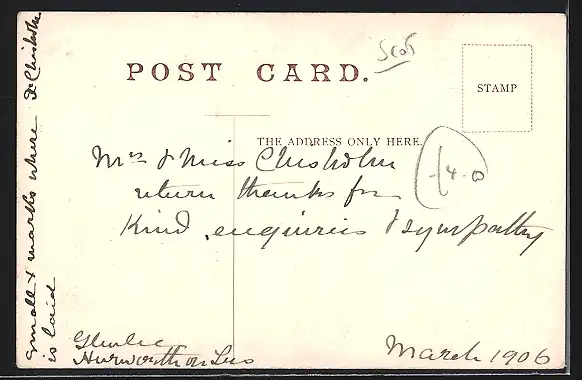 Scot
POST CARD.
STAMP
THE ADDRESS ONLY HERE.
£4.0
Mrs & Miss Chisholm
return thanks for
kind enquiries & sympathy
Hurworth on Tees
March 1906
small x marks where Dr Chisholm
is laid